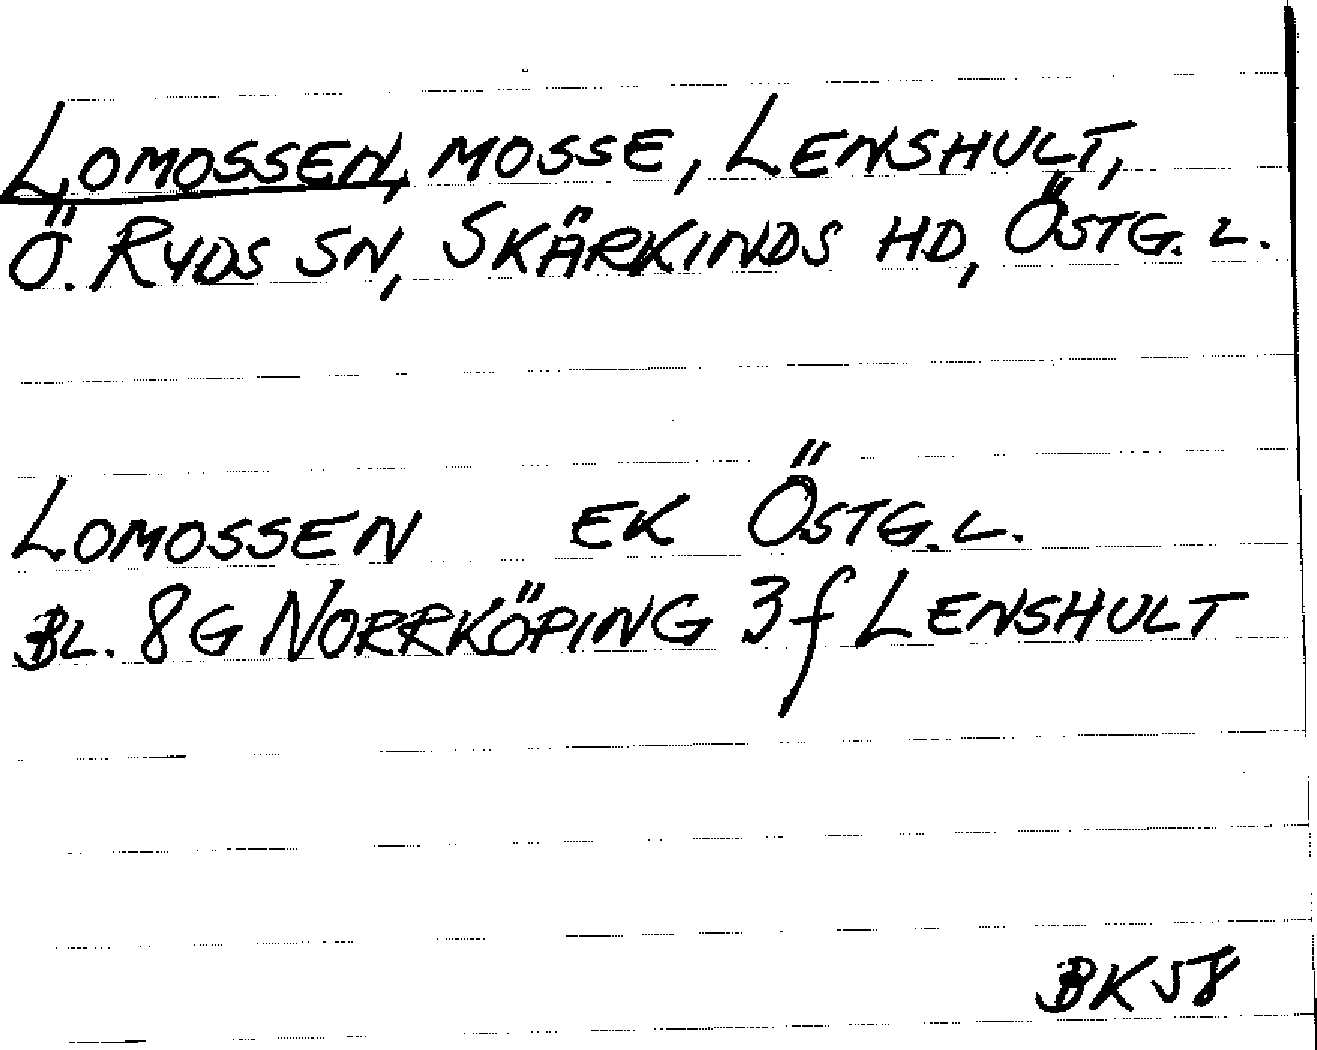 LOMOSSEN, MOSSE, LENSHULT,
Ö. RYDS SN, SKÄRKINDS HD, ÖSTG. L.
LOMOSSEN EK ÖSTG. L.
BL. 8G NORRKÖPING 3f LENSHULT
BK58